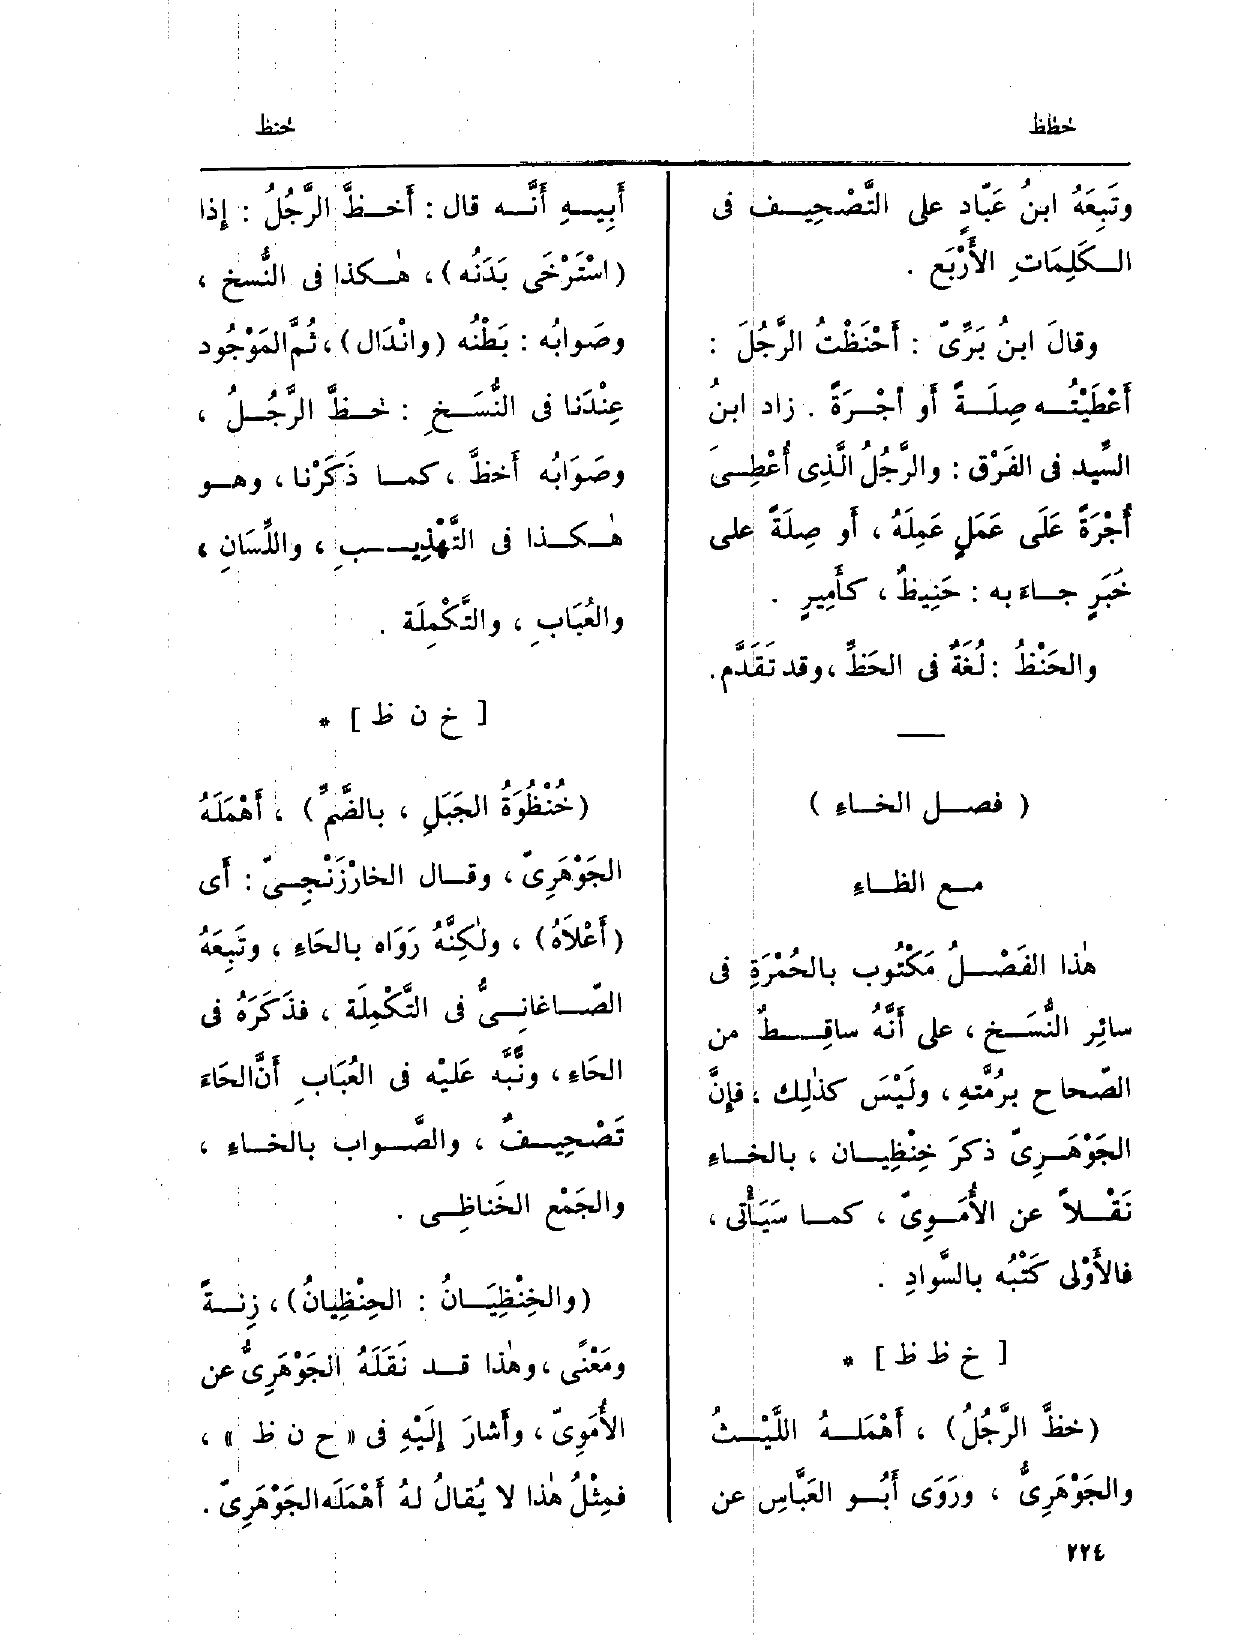 خظظ
خنظ
وتَبِعَهُ ابنُ عَبّادٍ على التَّصْحِيــف فى
الــكَلِمَاتِ الأَرْبَع .
وقالَ ابنُ بَرِّىّ : أَحْنَظْتُ الرَّجُلَ :
أَعْطَيْتُــه صِلَــةً أو أُجْــرَةً . زاد ابنُ
السِّيد فى الفَرْق : والرَّجُلُ الَّذِى أُعْطِــىَ
أُجْرَةً عَلَى عَمَلٍ عَمِلَهُ ، أَو صِلَةً على
خَبَرٍ جــاءَ به : حَنِيظٌ ، كأَمِيرٍ .
والحَنْظُ : لُغَةٌ فى الحَظِّ ، وقد تَقَدَّم.
( فصــل الخــاء )
مــع الظــاء
هٰذا الفَصْــلُ مَكْتُوب بالحُمْرَةِ فى
سائِرِ النُّسَــخ ، على أَنَّهُ ساقِــطٌ من
الصّحاح برُمَّتِهِ ، ولَيْسَ كذٰلِك ، فإِنَّ
الجَوْهَــرِىّ ذكرَ خِنْظِيــان ، بالخــاءِ
نَقْــلاً عن الأُمَــوِىّ ، كمــا سَيَأْتى ،
فالأَوْلى كَتْبُه بالسَّوادِ .
[ خ ظ ظ ] *
(خظَّ الرَّجُلُ) ، أَهْمَلــهُ اللَّيْــثُ
والجَوْهَرِىُّ ، ورَوَى أَبُــو العَبَّاسِ عن
أَبِيــهِ أَنَّــه قال : أَخــظَّ الرَّجُلُ : إِذا
(اسْتَرْخَى بَدَنُه) ، هٰــكذا فى النُّسخ ،
وصَوابُه : بَطْنُه (وانْدَال) ، ثُمَّ المَوْجُود
عِنْدَنا فى النُّسَــخ : خــظَّ الرَّجُــلُ ،
وصَوَابُه أَخظَّ ، كمــا ذَكَرْنا ، وهــو
هٰــكــذا فى التَّهْذِيــبِ ، واللِّسَانِ ،
والعُبَابِ ، والتَّكْمِلَة .
[ خ ن ظ ] *
(خُنْظُوَةُ الجَبَلِ ، بالضَّمِّ) ، أَهْمَلَهُ
الجَوْهَرِىّ ، وقــال الخارْزَنْجِــىّ : أَى
(أَعْلاَهُ) ، ولٰكِنَّهُ رَوَاه بالحَاءِ ، وتَبِعَهُ
الصّــاغانِــىُّ فى التَّكْمِلَة ، فذَكَرَهُ فى
الحَاءِ ، ونَبَّه عَلَيْه فى العُبَابِ أَنَّ الحَاءَ
تَصْحِيــفٌ ، والصَّــواب بالخــاءِ ،
والجَمْع الخَناظِــى .
(والخِنْظِيَــانُ : الحِنْظِيانُ) ، زِنــةً
ومَعْنًى ، وهٰذا قــد نَقَلَهُ الجَوْهَرِىُّ عن
الأُمَوِىّ ، وأَشارَ إِلَيْهِ فى « ح ن ظ » ،
فمِثْلُ هٰذا لا يُقالُ لهُ أَهْمَلَه الجَوْهَرِىّ .
٢٢٤